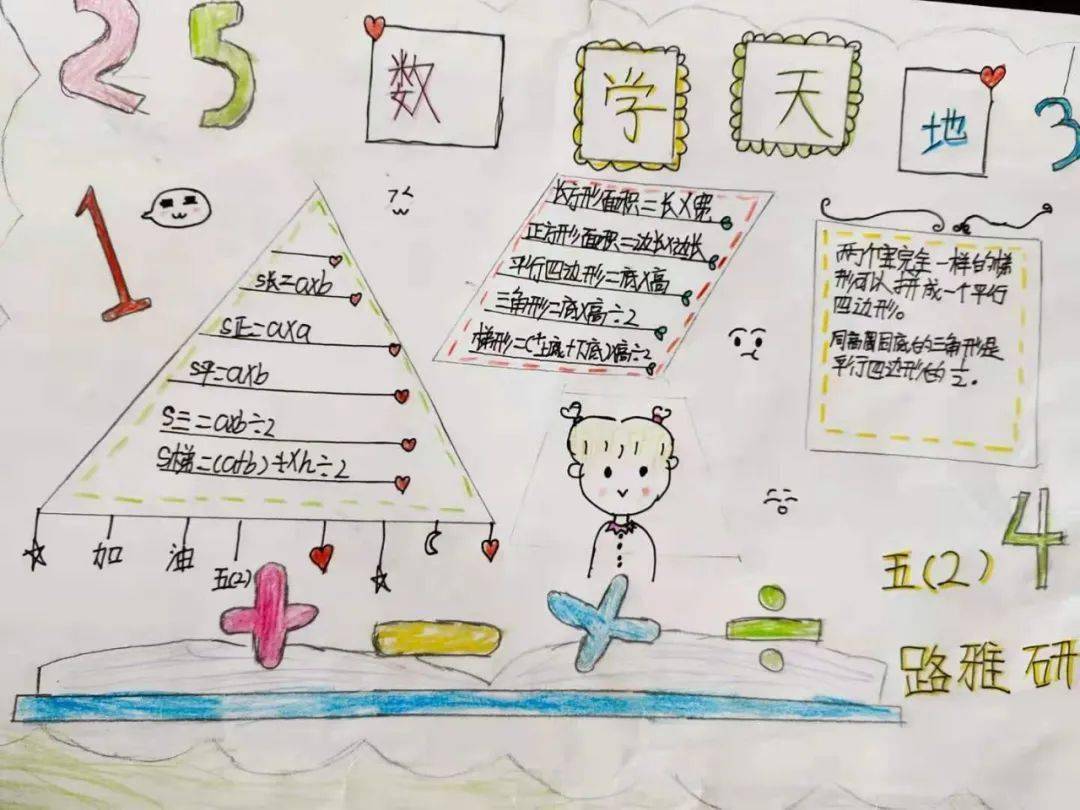 2 5 数 学 天 地 3
1
S长=axb
S正=axa
S平=axb
S三=axb÷2
S梯=(a+b)÷xh÷2
加 油
五(2)
长方形面积=长X宽
正方形面积=边长X边长
平行四边形=底X高
三角形=底X高÷2
梯形=(上底+下底)X高÷2
两个完全一样的梯
形可以拼成一个平行
四边形。
同高同底的三角形是
平行四边形的1/2.
4
五(2)
路雅研
+ − × ÷